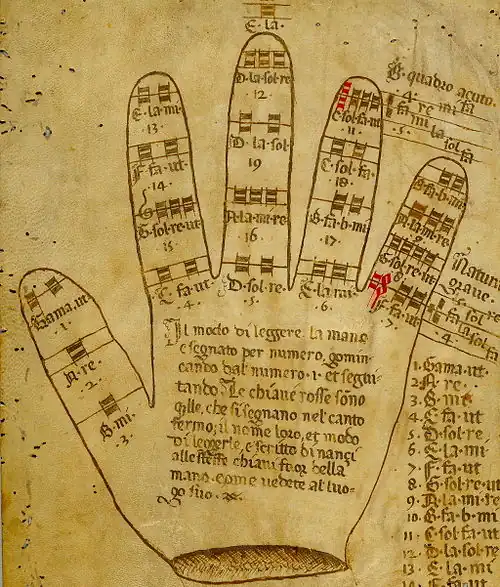 E·la·
D·la·sol·re·
12
D·la·sol·
19
A·la·mi·re·
16
D·sol·re·
·5·
E·la·mi·
·13·
F·fa·ut·
·14·
G·sol·re·ut
15
C·fa·ut·
·4·
C·sol·fa·ut
11
C·sol·fa·
·18·
B·fa·b·mi
·17·
E·la·mi·
·6·
B·fa·b·mi
A·la·mi·re
G·sol·re·ut
8
F·fa·ut·
·7·
Gama·ut
·1·
A·re·
·2·
B·mi·
3·
B·quadro acuto·
·4·
fa re mi fa
·5·
Natura
graue·
·5·
·4·
Il modo di leggere la mano
è segnato per numero, comin
cando dal numero ·1· et segui
tando: Le chiaui rosse sono
qlle, che si segnano nel canto
fermo; il nome loro, et modo
di leggerle, è scritto di nanci
alle stesse chiaui fuor della
mano come vedete al luo-
go suo
1·Gama·ut·
2·A·re·
3·B·mi·
4·C·fa·ut
5·D·sol·re·
6·E·la·mi
7·F·fa·ut
8·G·sol·re·ut
9·A·la·mi·re
10·B·fa·b·mi
11·C·sol·fa·ut
12·D·la·sol·re
13·E·la·mi
14·F·fa·ut